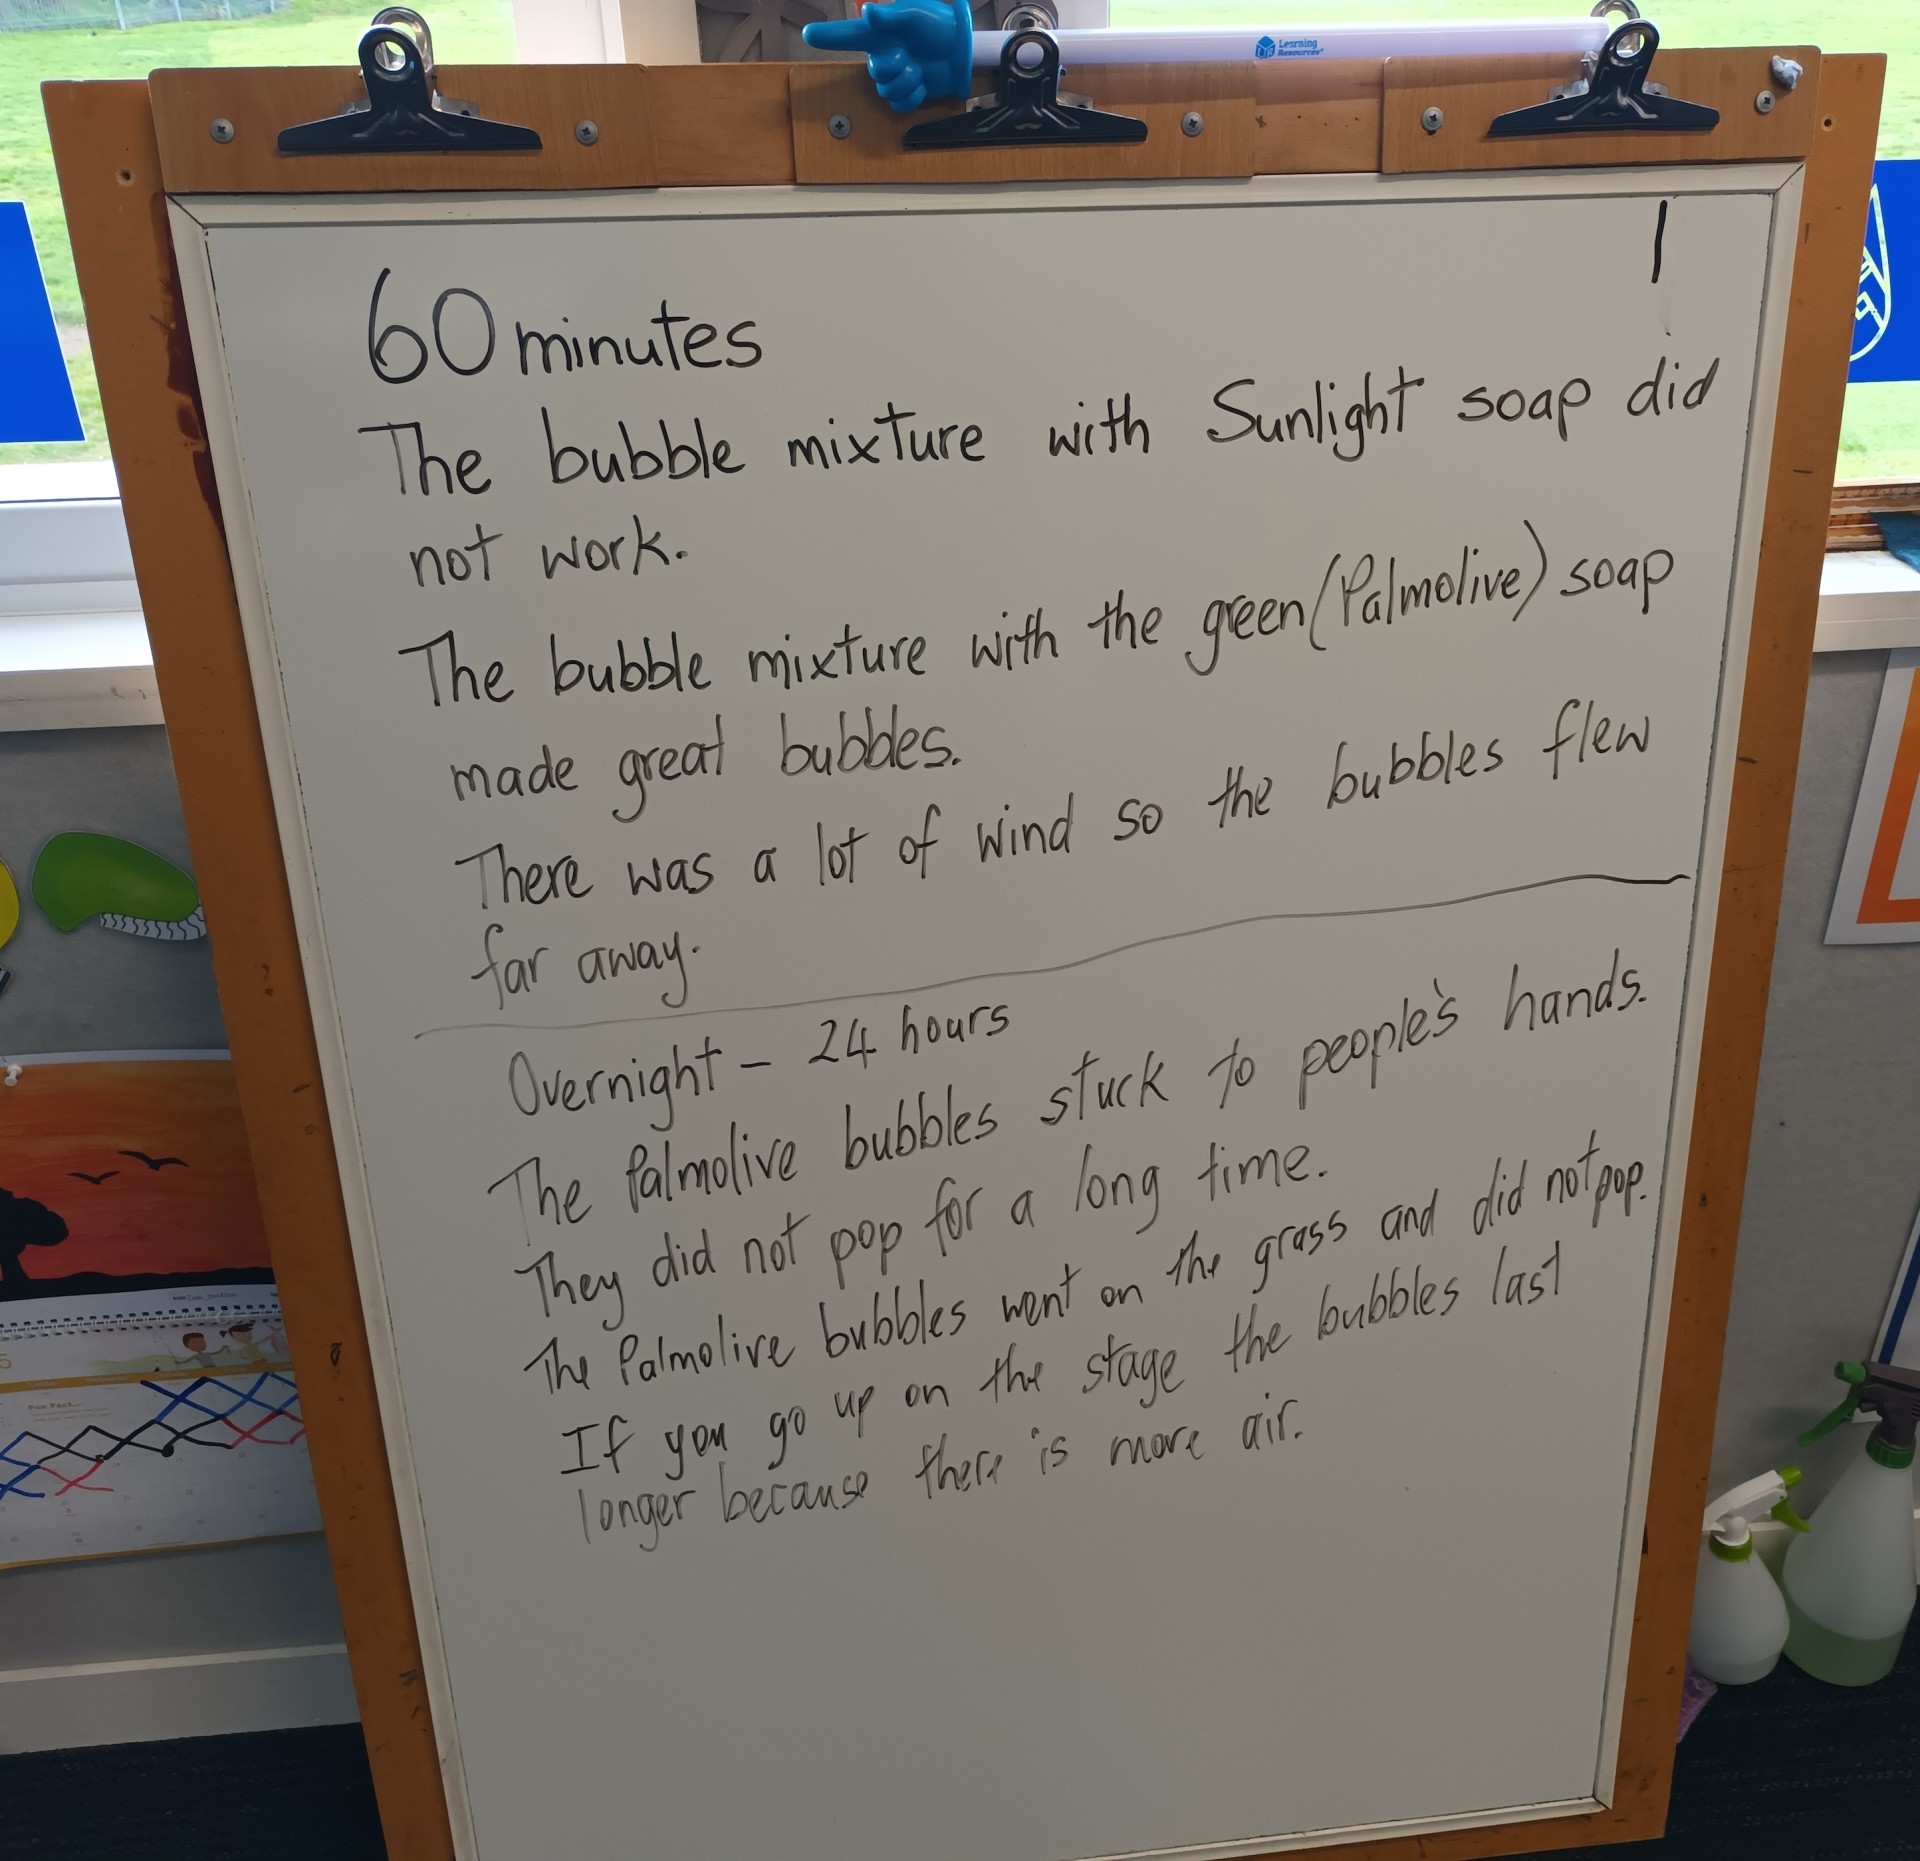 Learning
Resources
1
60 minutes
The bubble mixture with Sunlight soap did
not work.
The bubble mixture with the green (Palmolive) soap
made great bubbles.
There was a lot of wind so the bubbles flew
far away.
Overnight - 24 hours
The Palmolive bubbles stuck to people's hands.
They did not pop for a long time.
The Palmolive bubbles went on the grass and did not pop.
If you go up on the stage the bubbles last
longer because there is more air.
Fun Fact...